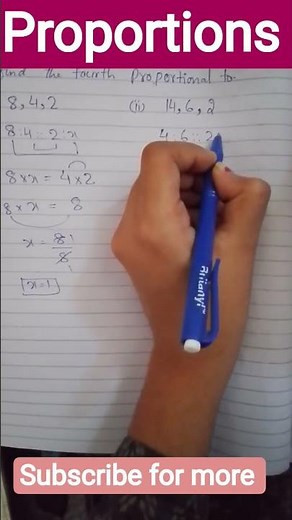 Proportions
the fourth Proportional to
8, 4, 2
(ii) 14, 6, 2
8:4::2:x
4 6::2
8 x x = 4 x 2
8 x x = 8
x = 8/8
1
1
x=1
Subscribe for more